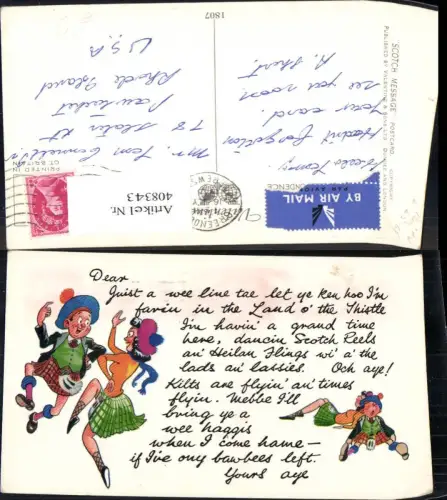 1807
SCOTCH MESSAGE POSTCARD. COPYRIGHT.
PUBLISHED BY VALENTINE & SONS LTD. DUNDEE AND LONDON.
PRINTED IN
GT. BRITAIN
BY AIR MAIL
PAR AVION
Artikel Nr.
408343
your card.
see you soon.
Mr. Tom
Pawtucket
Rhode Island
U.S.A
Dear
Juist a wee line tae let ye ken hoo I'm
farin in the Land o' the Thistle
I'm havin' a grand time
here, dancin Scotch Reels
an' Heilan Flings wi' a' the
lads an' lassies. Och aye!
Kilts are flyin' an' times
flyin. Mebbe I'll
bring ye a
wee haggis
when I come hame—
if I've ony bawbees left.
Yours aye